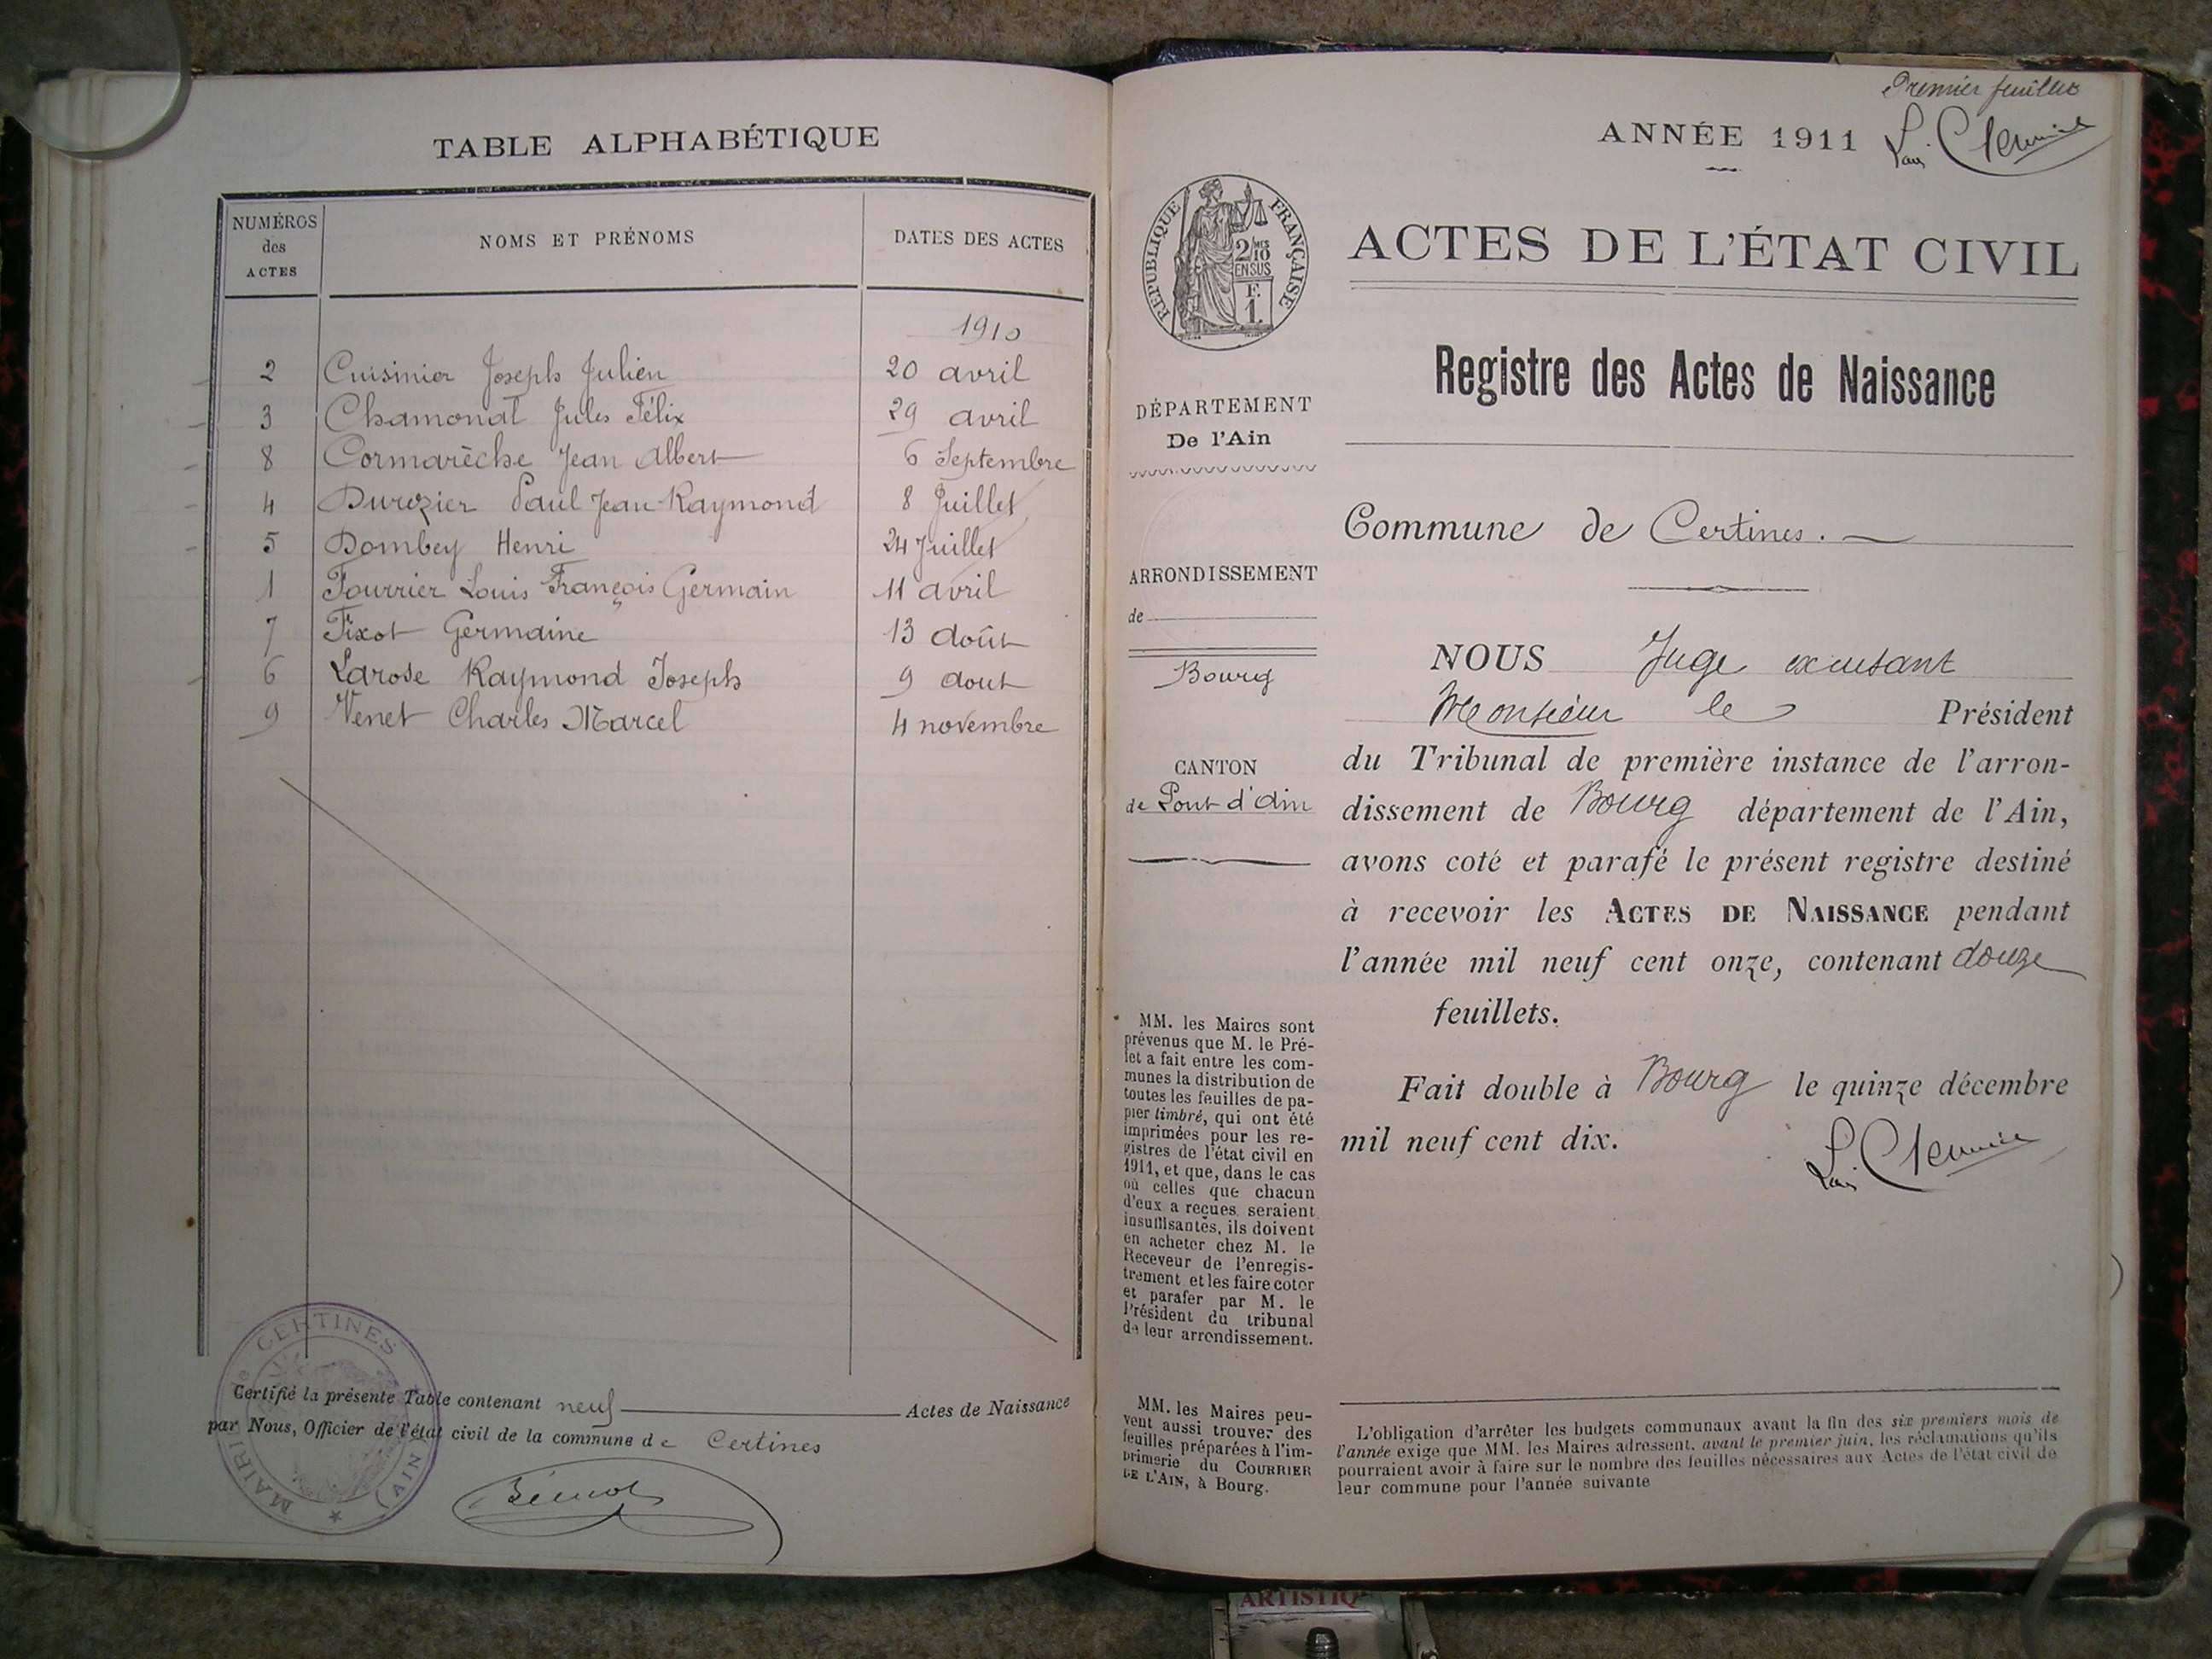 TABLE ALPHABÉTIQUE
NUMÉROS
des
ACTES
NOMS ET PRÉNOMS
DATES DES ACTES
1910
2 Cuisinier Joseph Julien 20 avril
3 Chamonal Jules Félix 29 avril
8 Cormarèche Jean Albert 6 Septembre
4 Durozier Paul Jean Raymond 8 Juillet
5 Dombey Henri 24 Juillet
1 Fourrier Louis François Germain 11 avril
7 Fixot Germaine 13 août
6 Larose Raymond Joseph 9 aout
9 Venet Charles Marcel 4 novembre
Certifié la présente Table contenant neuf Actes de Naissance
par Nous, Officier de l'état civil de la commune de Certines
MAIRIE de CERTINES (AIN)
Premier feuillet
ANNÉE 1911
RÉPUBLIQUE FRANÇAISE
2/10 MES
EN SUS
F.
1.
ACTES DE L'ÉTAT CIVIL
Registre des Actes de Naissance
DÉPARTEMENT
De l'Ain
ARRONDISSEMENT
de
Bourg
CANTON
de Pont d'Ain
MM. les Maires sont
prévenus que M. le Pré-
fet a fait entre les com-
munes la distribution de
toutes les feuilles de pa-
pier timbré, qui ont été
imprimées pour les re-
gistres de l'état civil en
1911, et que, dans le cas
où celles que chacun
d'eux a reçues seraient
insuffisantes, ils doivent
en acheter chez M. le
Receveur de l'enregis-
trement et les faire coter
et parafer par M. le
Président du tribunal
de leur arrondissement.
MM. les Maires peu-
vent aussi trouver des
feuilles préparées à l'im-
primerie du COURRIER
DE L'AIN, à Bourg.
Commune de Certines.
NOUS Juge
Monsieur le Président
du Tribunal de première instance de l'arron-
dissement de Bourg département de l'Ain,
avons coté et parafé le présent registre destiné
à recevoir les ACTES DE NAISSANCE pendant
l'année mil neuf cent onze, contenant douze
feuillets.
Fait double à Bourg le quinze décembre
mil neuf cent dix.
L'obligation d'arrêter les budgets communaux avant la fin des six premiers mois de
l'année exige que MM. les Maires adressent, avant le premier juin, les réclamations qu'ils
pourraient avoir à faire sur le nombre des feuilles nécessaires aux Actes de l'état civil de
leur commune pour l'année suivante
ARTISTIQ